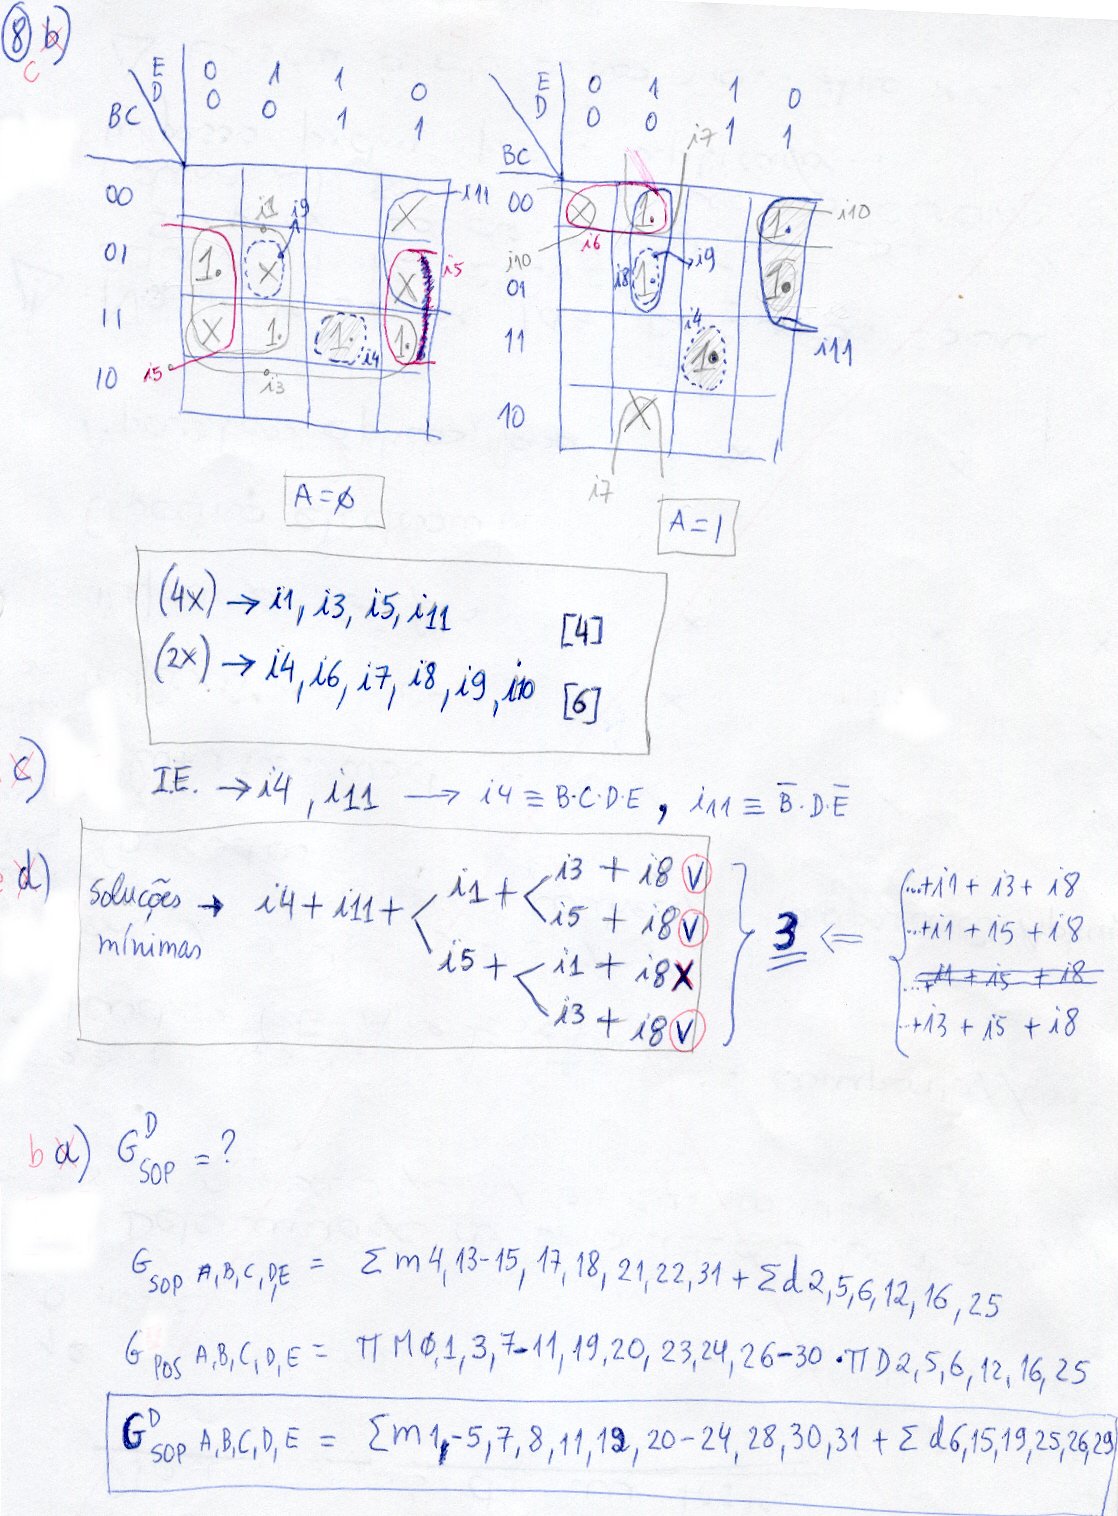 8 b)
c
E 0 1 1 0
D 0 0 1 1
BC
00 X i11
i1 i9
01 1. X X i5
11 X 1. 1. i4 1.
10 i5 i3
A=ϕ
E 0 1 1 0
D 0 0 1 1
i7
BC
00 X 1. 1. i10
i6
i10
01 i8 1. i9 1.
i4
11 1. i11
10 X
i7
A=1
(4x) → i1, i3, i5, i11 [4]
(2x) → i4, i6, i7, i8, i9, i10 [6]
c) I.E. → i4, i11 → i4 ≡ B·C·D·E, i11 ≡ B̅·D·E̅
d) Soluções mínimas → i4 + i11 +
i1 + < i3 + i8 V
i5 + i8 V
i5 + < i1 + i8 X
i3 + i8 V
3 ⇐
...+i1 + i3 + i8
...+i1 + i5 + i8
...+i1 + i5 + i8
...+i3 + i5 + i8
b a) G^D SOP = ?
G SOP A,B,C,D,E = Σ m 4,13-15, 17,18, 21,22,31 + Σ d 2,5,6,12,16,25
G POS A,B,C,D,E = π M ϕ,1,3,7-11,19,20,23,24,26-30 · π D 2,5,6,12,16,25
G^D SOP A,B,C,D,E = Σ m 1,-5,7,8,11,12,20-24,28,30,31 + Σ d 6,15,19,25,26,29